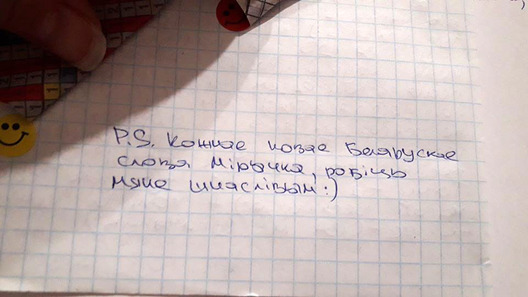 P.S. Кожнае новае Беларускае
слова Мірычка, робіць
мяне шчаслівым :)